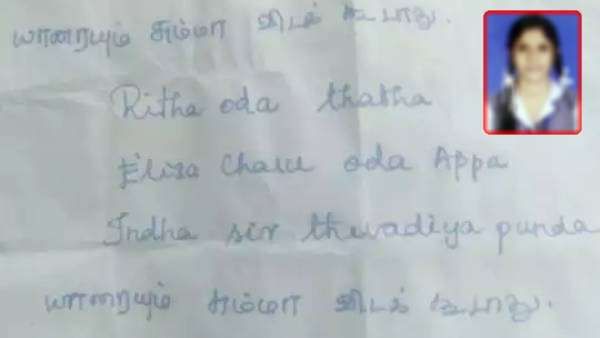 யாரையும் சும்மா விடக் கூடாது.
Ritha oda thatha
Elisa Chalu oda Appa
Indha sir thevadiya punda
யாரையும் சும்மா விடக் கூடாது.